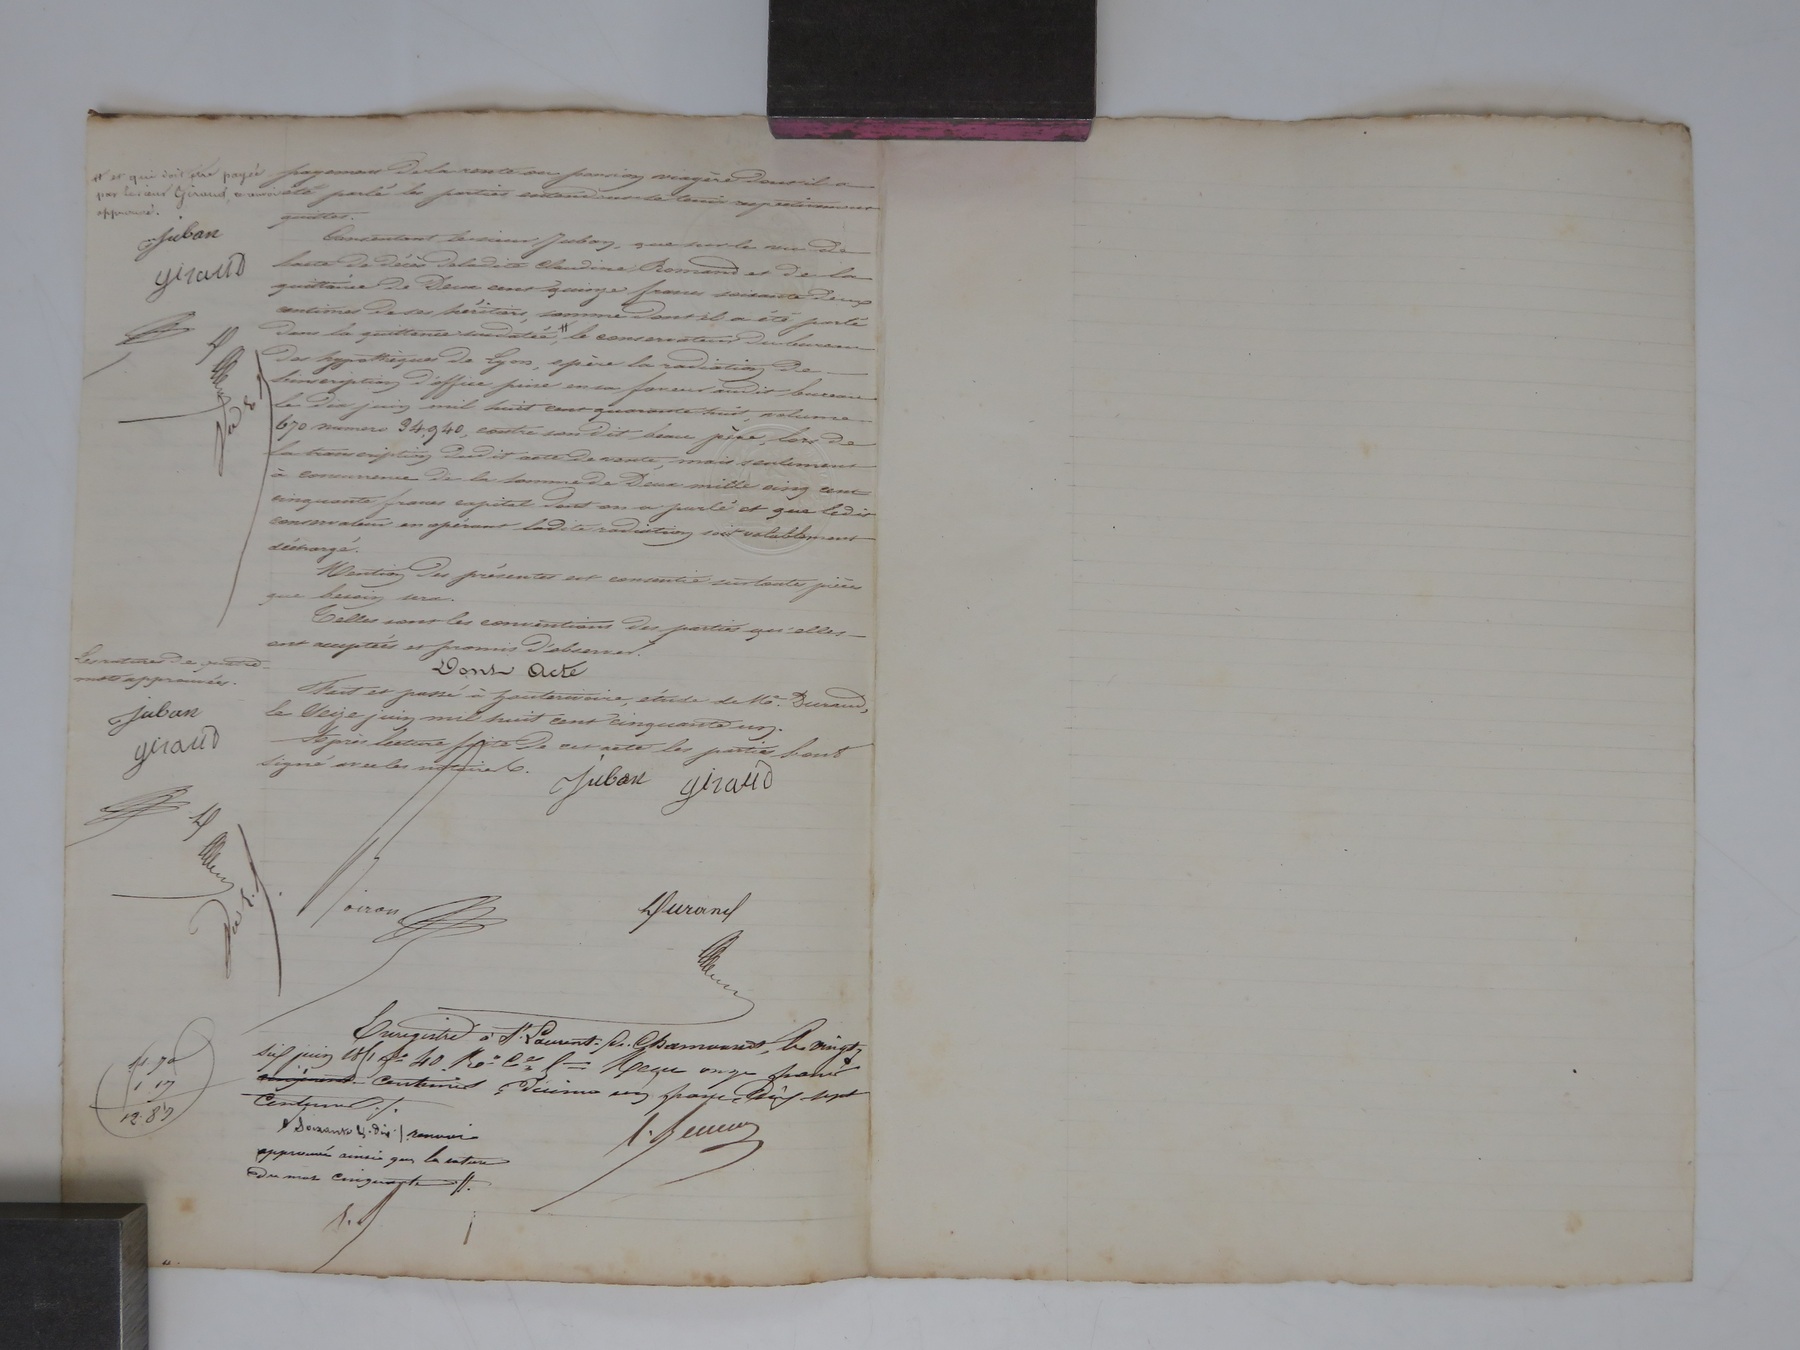 # et qui doit être payée
par le sieur Giraud, a aussi
approuvé.
Juban
Giraud
payement de la rente ou pension viagère dont il a
été parlé les parties entendant se tenir respectivement
quittes.
Consentant le sieur Juban, que sur le vu de
l'acte de décès de ladite Claudine Romand et de la
quittance de Deux cent quinze francs soixante deux
centimes de ses héritiers, somme dont il a été parlé
dans la quittance susdatée, # le conservateur du bureau
des hypothèques de Lyon, opère la radiation de
l'inscription d'office prise en sa faveur audit bureau
le dix juin mil huit cent quarante huit, volume
670 numéro 34,940, contre son dit beau père, lors de
la transcription dudit acte de vente, mais seulement
à concurrence de la somme de Deux mille cinq cent
cinquante francs capital dont on a parlé et que ledit
conservateur en opérant ladite radiation soit valablement
déchargé.
Mention des présentes est consentie sur toutes pièces
que besoin sera.
Telles sont les conventions des parties qu'elles
ont acceptées et promis d'observer.
Dont Acte
Fait et passé à étude de Me. Durand,
le seize juin mil huit cent cinquante un.
Après lecture faite de cet acte les parties l'ont
signé avec les notaires.
Juban Giraud
Les ratures de quatre
mots approuvées.
Juban
Giraud
Durand
Enregistré à St. Laurent de Chamousset, le vingt
six juin 1851 fo 40 Ro Reçu onze francs
centimes, Décime un franc dix sept
centimes.
11 70
1 17
12.87
x Soixante & dix / renvoi
approuvé ainsi que la rature
du mot cinquante //.